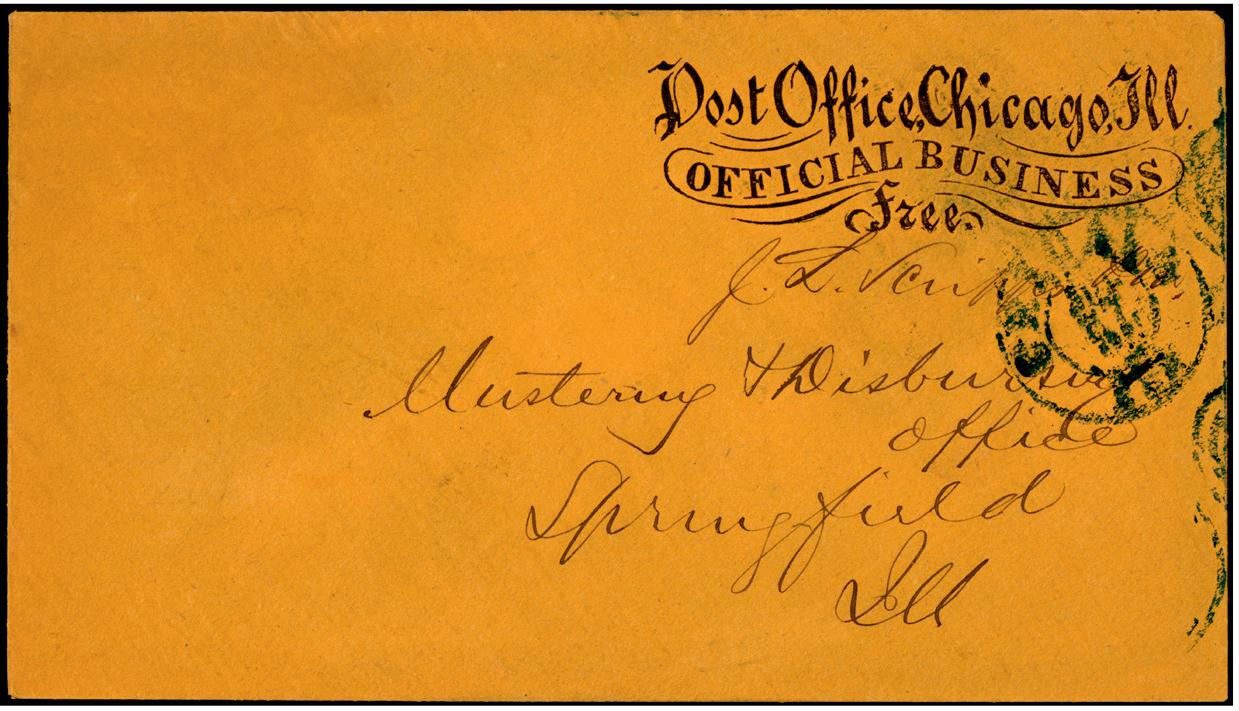 Post Office, Chicago, Ill.
OFFICIAL BUSINESS
Free.
J. L. Scripps P.M.
Mustering & Disbursing
office
Springfield
Ill